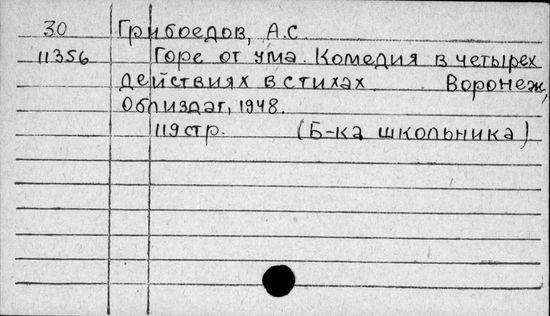 30 Грибоедов, А.С.
11356 Горе от ума. Комедия в четырех
действиях в стихах. Воронеж,
Облиздат, 1948.
119 стр. (Б-ка школьника)